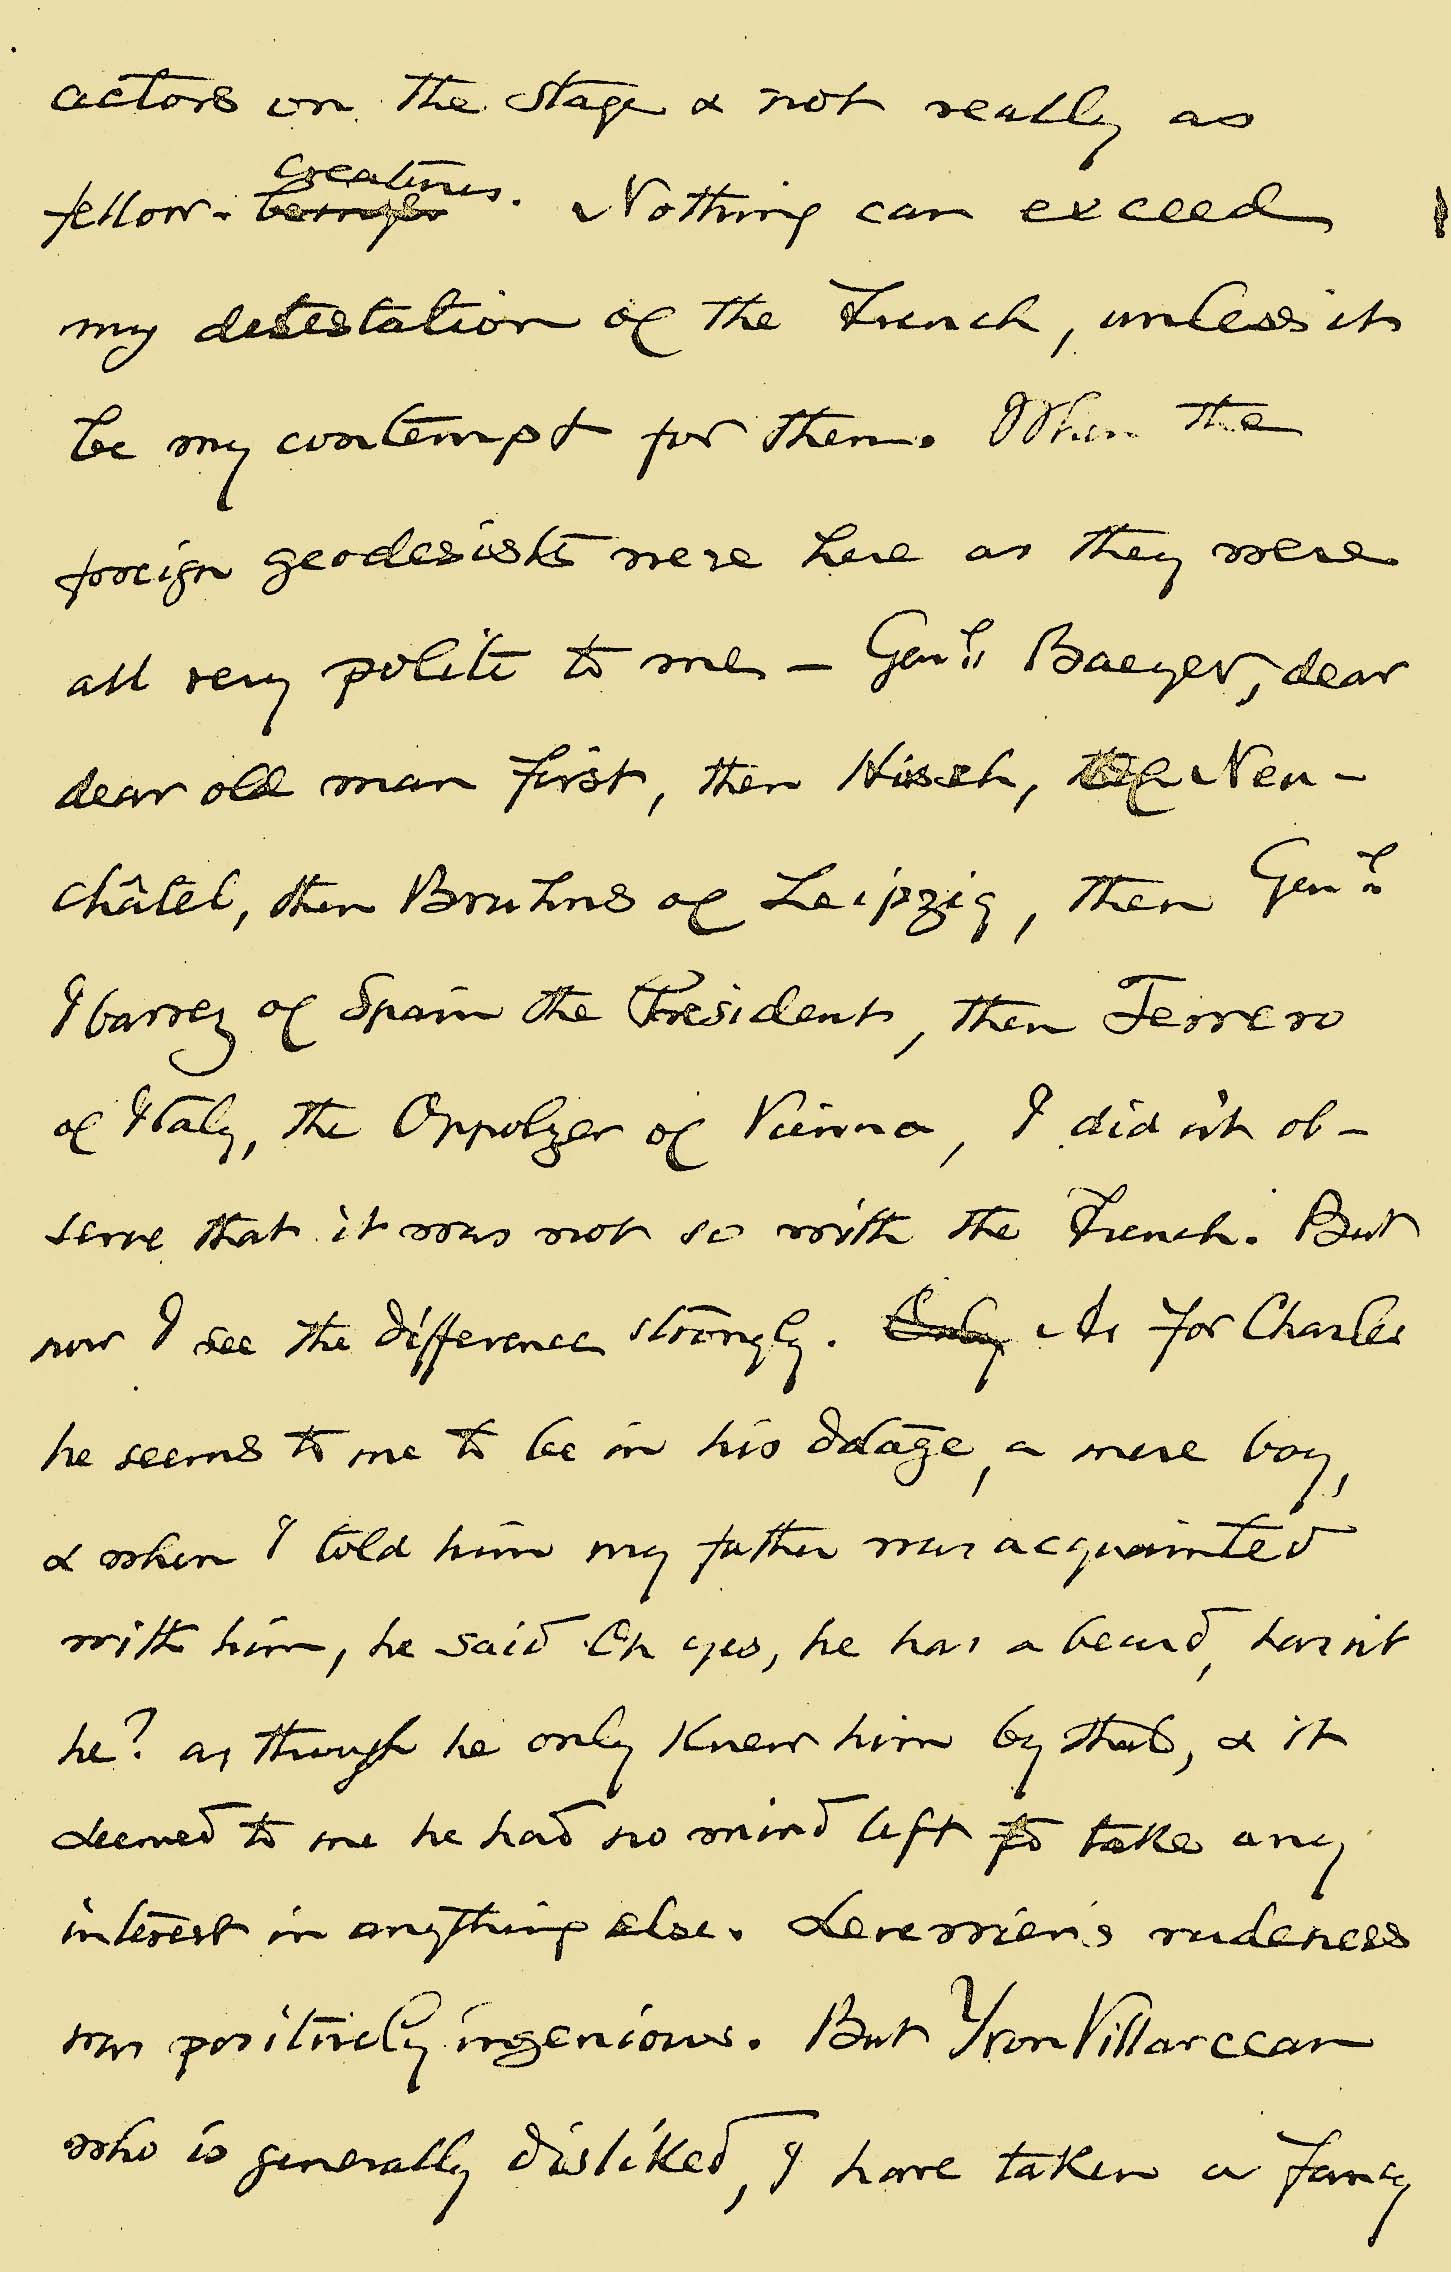 actors on the stage & not really as
creatures.
fellow-beings Nothing can exceed
my detestation of the French, unless it
be my contempt for them. When the
foreign geodesists were here as they were
all very polite to me — Gen'll Baeyer, dear
dear old man first, then Hirsch, of Neu-
châtel, then Bruhns of Leipzig, then Gen'l
Ibarrez of Spain the President, then Ferrero
of Italy, the Oppolzer of Vienna, I did n't ob-
serve that it was not so with the French. But
now I see the difference strongly. Only As for Charles
he seems to me to be in his dotage, a mere boy,
& when I told him my father was acquainted
with him, he said Oh yes, he has a beard, has n't
he? as though he only knew him by that, & it
seemed to me he had no mind left to take any
interest in anything else. Leverrier's rudeness
was positively ingenious. But Yvon Villarceau
who is generally disliked, I have taken a fancy